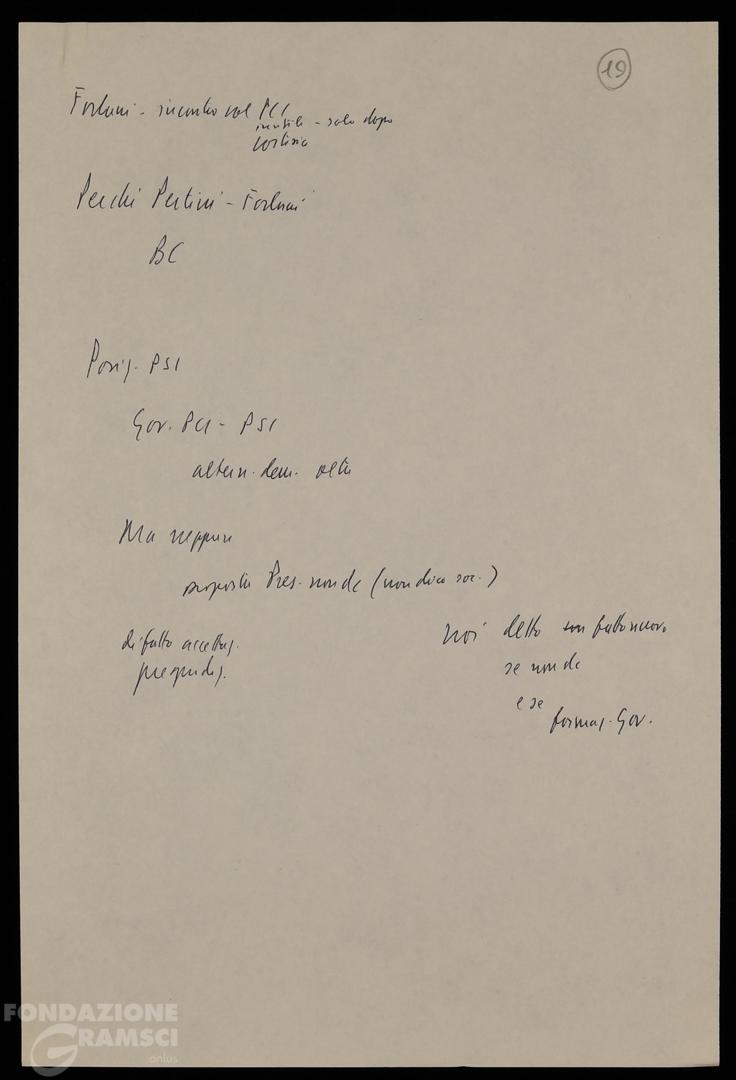 19
Forlani - incontro col PCI
inutile - solo dopo
cortesia
Perché Pertini - Forlani
BC
Posiz. PSI
Gov. PCI - PSI
altern. dem.
Ma neppure
proposta Pres. non dc (non dico soc.)
di fatto accettaz.
pregiudiz.
noi detto fatto nuovo
se non dc
e se
formaz. Gov.
FONDAZIONE
GRAMSCI
onlus